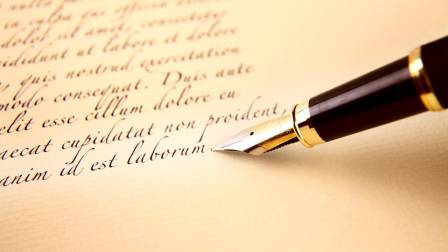 nulla pariatur
dolor sit amet, consectetur
cididunt ut labore et dolore
, quis nostrud exercitation
modo consequat. Duis aute
elit esse cillum dolore eu
aecat cupidatat non proident,
anim id est laborum